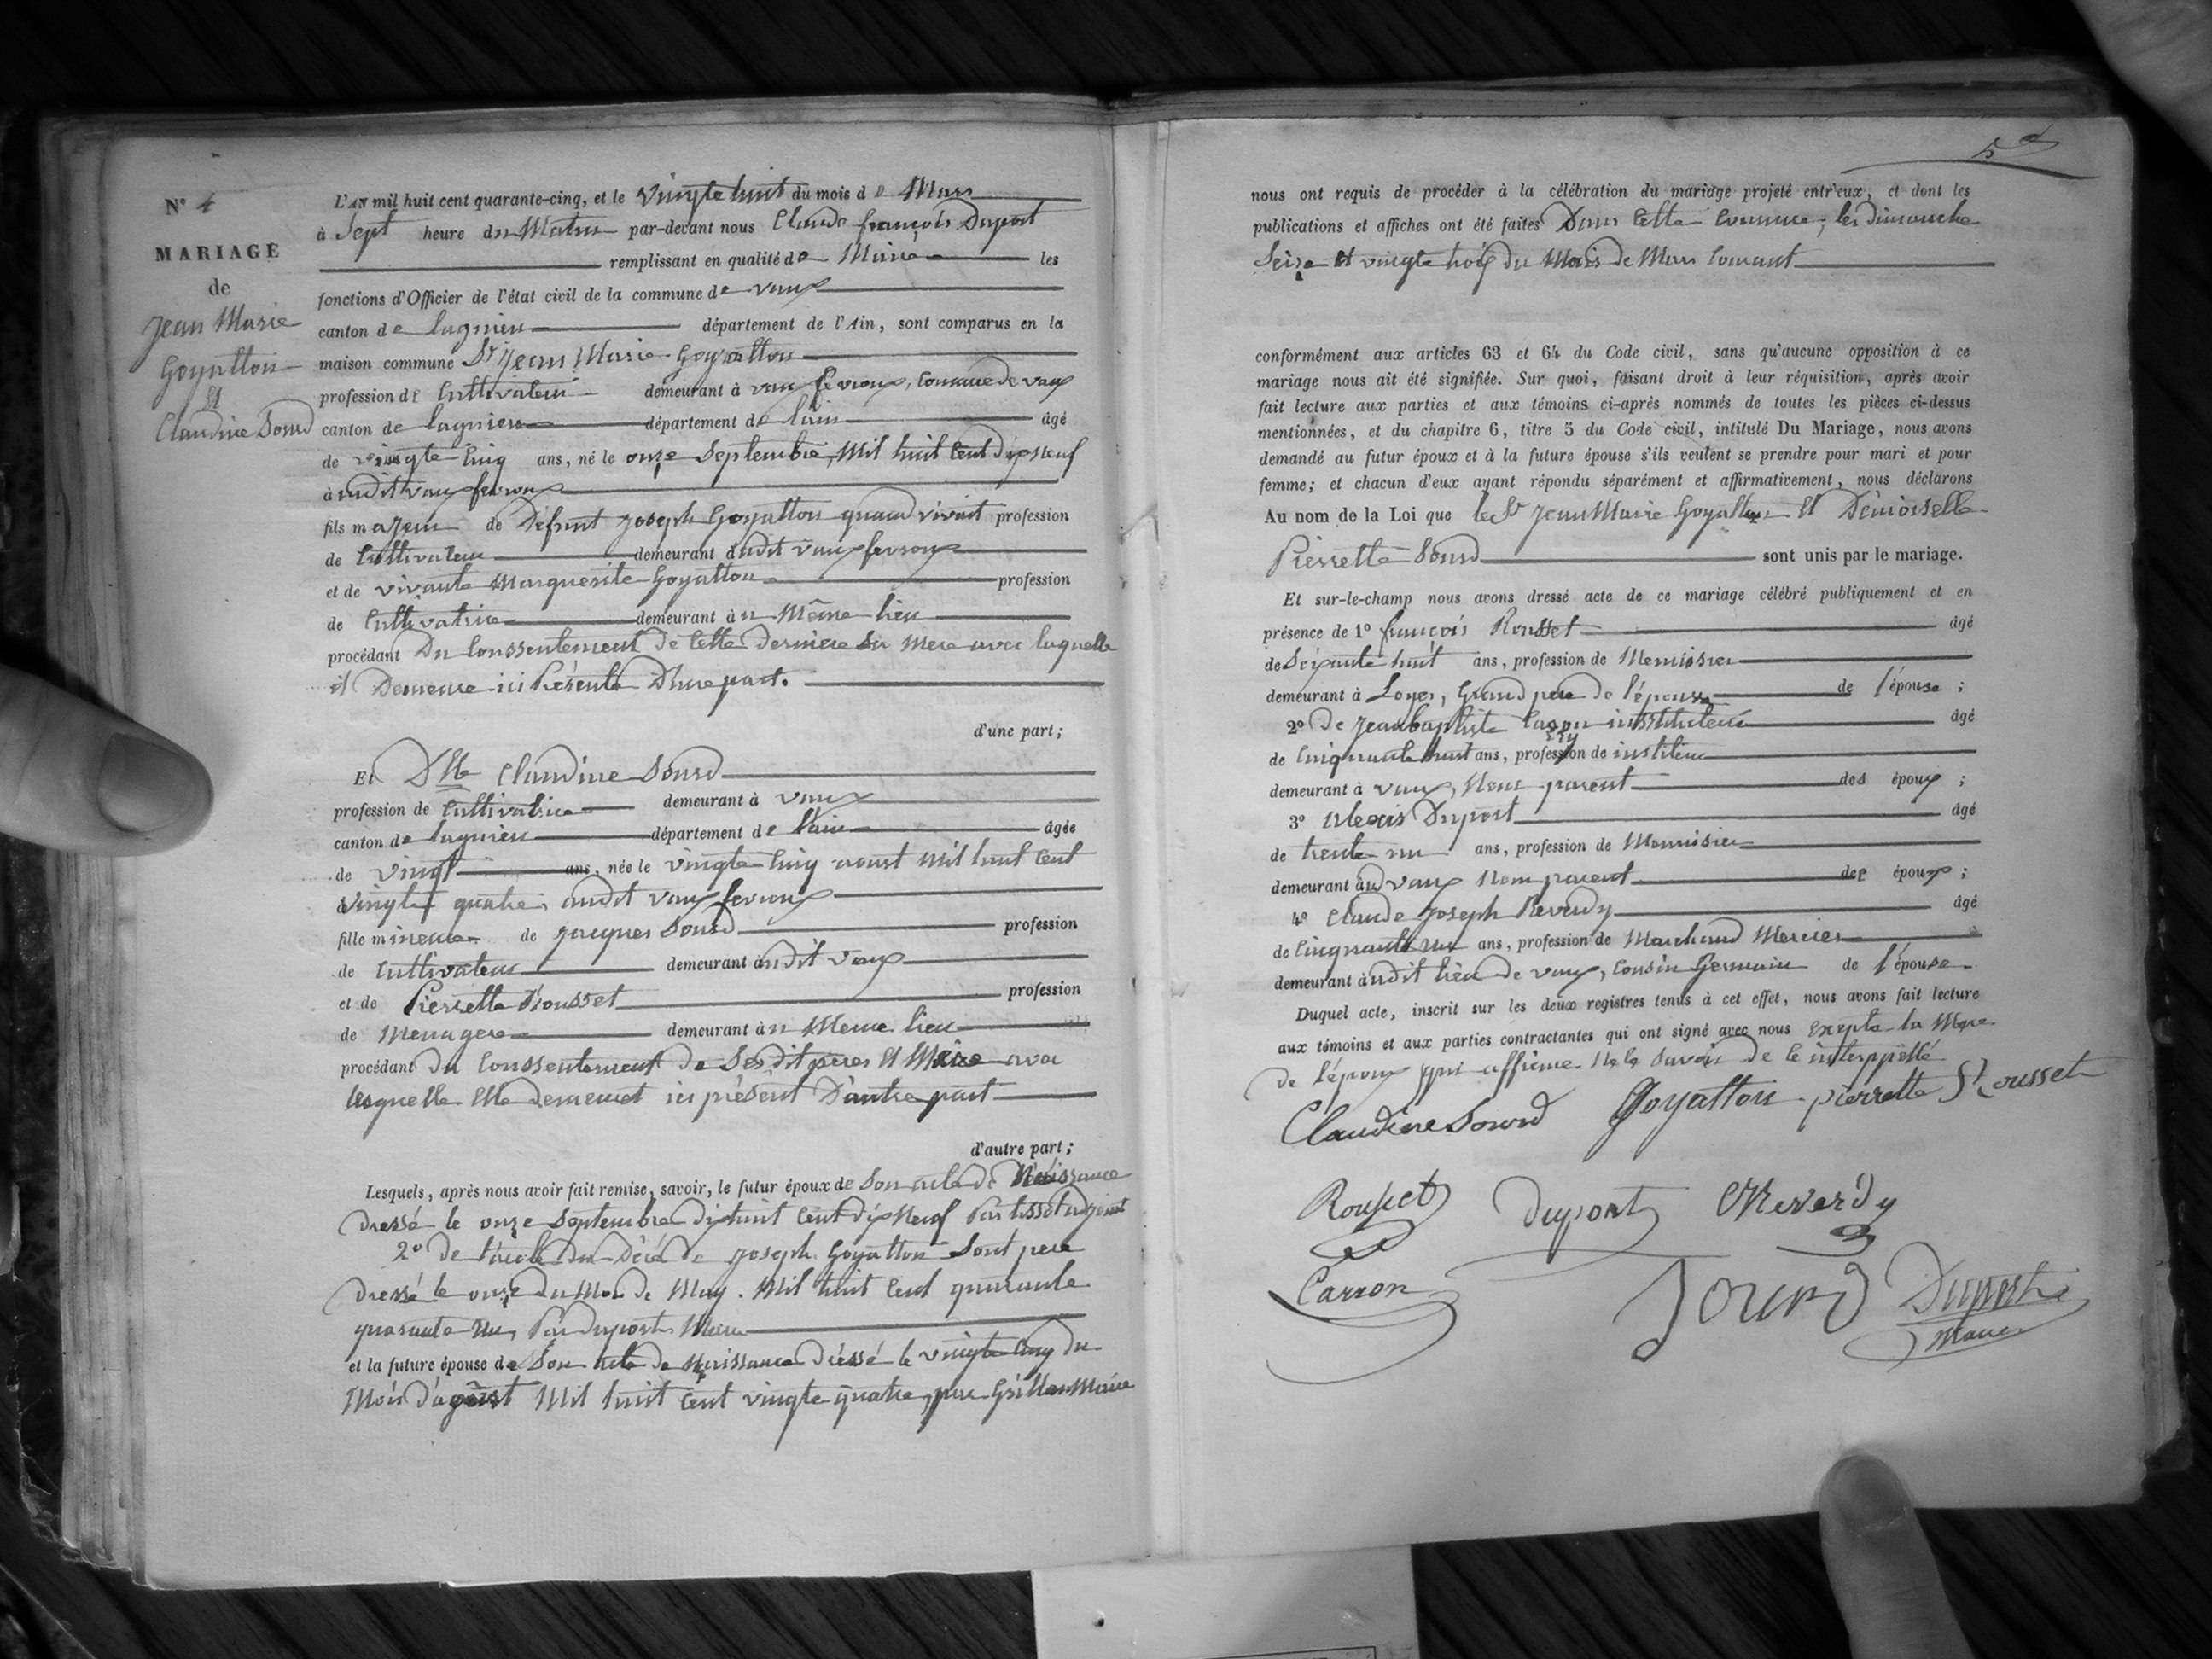 N° 4
MARIAGE
de
Jean Marie
Goyatton
et
Claudine Sourd
L'AN mil huit cent quarante-cinq, et le vingte huit du mois de Mars
à Sept heure du Matin par-devant nous Claude françois Dupont
remplissant en qualité de Maire les
fonctions d'Officier de l'état civil de la commune de vaux
canton de lagnieu département de l'Ain, sont comparus en la
maison commune Sr Jean Marie Goyatton
profession de Cultivateur demeurant à vaux fevroux, Commune de vaux
canton de lagnieu département de l'ain âgé
de vingte Cinq ans, né le onze Septembre, Mil huit Cent dix neuf
à udit vaux fevroux
fils majeur de Défunt Joseph Goyatton quand vivait profession
de Cultivateur demeurant audit vaux fevroux
et de vivante Marguerite Goyatton profession
de Cultivatrice demeurant au Même lieu
procédant Du Conssentement de Cette derniere sa Mere avec laquelle
il Demeure ici Présente D'une part.
d'une part;
Et Dlle Claudine Sourd
profession de Cultivatrice demeurant à vaux
canton de lagnieu département de l'ain âgée
de vingt ans, née le vingte Cinq aoust Mil huit Cent
vingte quatre, audit vaux fevroux
fille mineure de Jacques Sourd profession
de Cultivateur demeurant audit vaux
et de Pierrette Rousset profession
de Menagere demeurant au Meme lieu
procédant du Conssentement de Ses dit peres Et Mère avec
lesquelle Elle demeuret ici présent D'autre part
d'autre part;
Lesquels, après nous avoir fait remise, savoir, le futur époux de Son acte de Naissance
dressé le onze Septembre dixhuit Cent dix Neuf Par tissot adjoint
2° De l'acte du Décé de Joseph Goyatton Sont pere
Dressé le onze du Moi de May. Mil huit Cent quarante
quarante un, Par dupont Maire
et la future épouse de Son acte de Naissance dressé le vingte Cinq du
Mois d'aoust Mil huit Cent vingte quatre, par Maire
5
nous ont requis de procéder à la célébration du mariage projeté entr'eux, et dont les
publications et affiches ont été faites Dans Cette Commune, les dimanche
Seize et vingte trois du Mois de Mars Courant
conformément aux articles 63 et 64 du Code civil, sans qu'aucune opposition à ce
mariage nous ait été signifiée. Sur quoi, faisant droit à leur réquisition, après avoir
fait lecture aux parties et aux témoins ci-après nommés de toutes les pièces ci-dessus
mentionnées, et du chapitre 6, titre 5 du Code civil, intitulé Du Mariage, nous avons
demandé au futur époux et à la future épouse s'ils veulent se prendre pour mari et pour
femme; et chacun d'eux ayant répondu séparément et affirmativement, nous déclarons
Au nom de la Loi que le Sr Jean Marie Goyatton Et Démoiselle
Pierrette Sourd sont unis par le mariage.
Et sur-le-champ nous avons dressé acte de ce mariage célébré publiquement et en
présence de 1° françois Rousset âgé
de Soixante huit ans, profession de Menuisier
demeurant à Loyes, Grand pere de l'épouse de l'épouse;
2° De Jean baptiste institeur âgé
de Cinquante huit ans, profession de institeur
demeurant à vaux, Non parent des époux;
3° Alexis Dupont âgé
de trente un ans, profession de Menuisier
demeurant aud vaux Non parent des époux;
4° Claude Joseph Reverdy âgé
de Cinquante un ans, profession de Marchand Mercier
demeurant audit lieu de vaux, Cousin Germain de l'épouse
Duquel acte, inscrit sur les deux registres tenus à cet effet, nous avons fait lecture
aux témoins et aux parties contractantes qui ont signé avec nous Excepte la Mere
De l'époux qui affirme Ne le Savoir De le interppellé
Claudine Sourd Goyatton pierrette Rousset
Rousset Dupont CReverdy
Carron Sourd Dupont
Maire